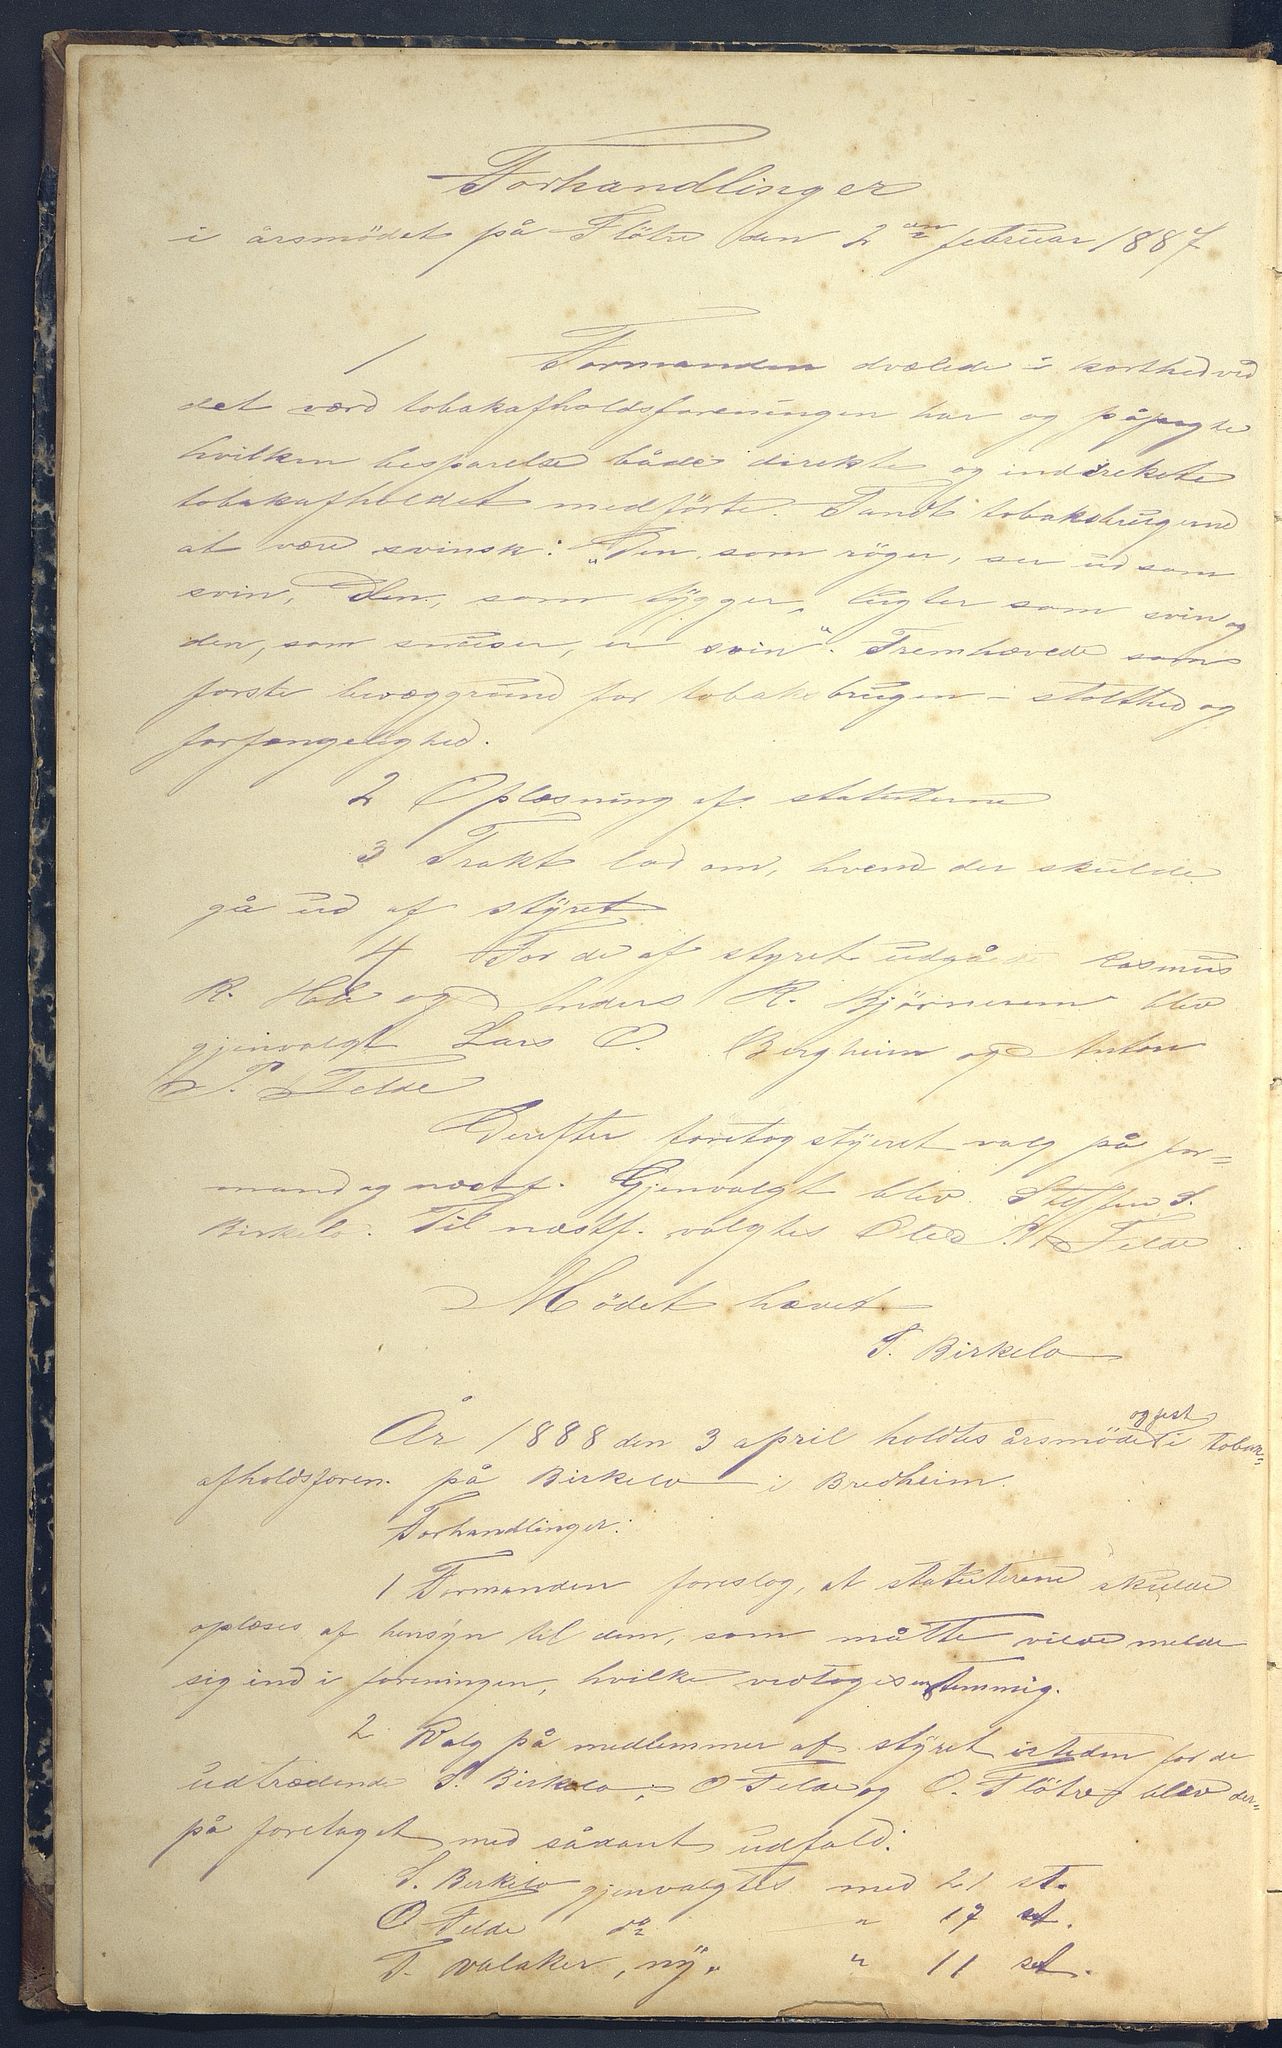 Forhandlinger
i årsmödet på Flötre den 2den februar 1887
1 Formanden dvælede i korthed ved
det værd tobakafholdsforeningen har og påpegte
hvilken besparelse både direkte og indirekte
tobakafholdet medförte. Fandt tobaksbrugerne
at være svinsk: „Den, som röger, ser ud som
svin, Den, som tygger, lugter som svin og
den, som snuser, er svin“. Fremhævede som
forste bevæggrund for tobaksbrugen – stolthed og
forfængelighed.
2 Oplæsning af statuterne
3 Trakt lod om, hvem der skulde
gå ud af styret
4 For de af styret udgåede Rasmus
R. Hole og Anders R. Bjørnereim blev
gjenvalgt Lars O. Bergheim og Anton
P. Felde
Derefter foretog styret valg på for=
mand og næstf. Gjenvalgt blev Steffen S.
Birkelo. Til næstf. valgtes Ole Felde.
Mödet hævet
S. Birkelo
År 1888 den 3 april holdtes årsmöde og fest i tobak=
afholdsforen. på Birkelo i Bredheim.
Forhandlinger:
1 Formanden foreslog, at statuterne skulde
oplæses af hensyn til dem, som måtte vilde melde
sig ind i foreningen, hvilke vedtoges enstemmig.
2 Valg på medlemmer af styret isteden for de
udtrædende S. Birkelo, O Felde og O. Flötre blev der=
på foretaget med sådant udfald:
S. Birkelo gjenvalgtes med 21 st.
O Felde do „ 17 st.
T. Valaker, ny „ „ 11 st.